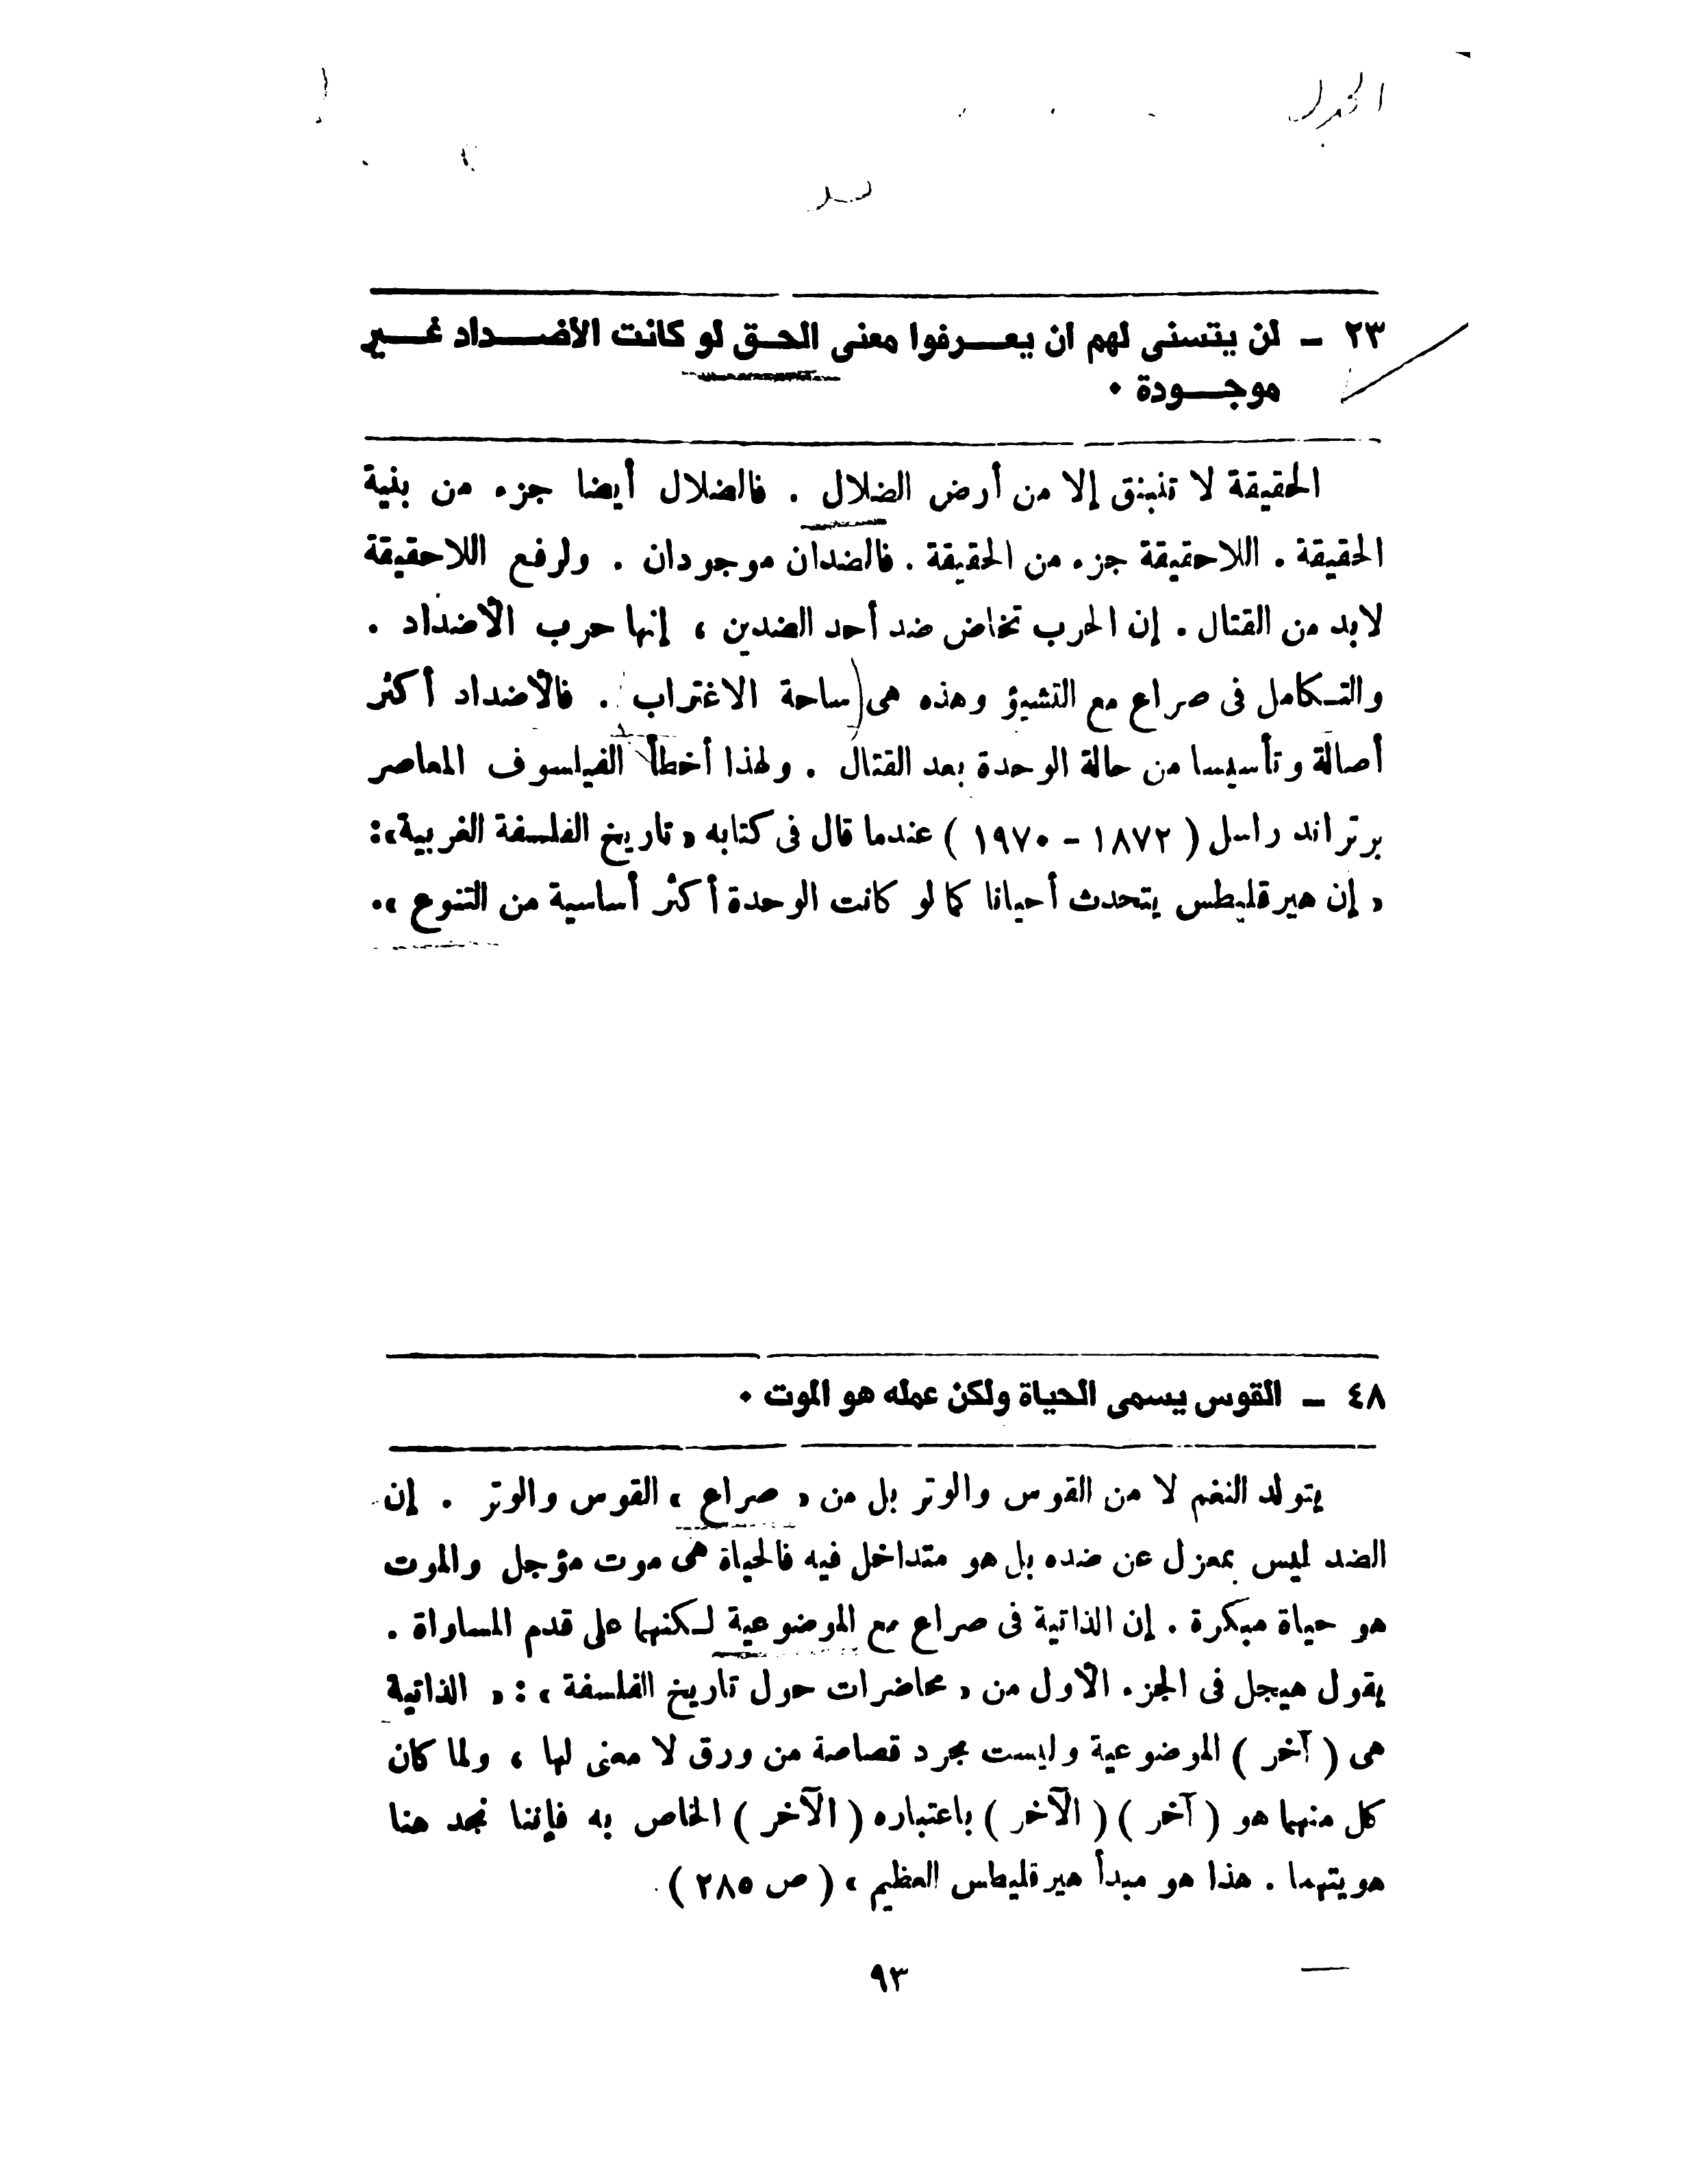 الجدل
٢٣ - لن يتسنى لهم ان يعرفوا معنى الحق لو كانت الأضداد غير
موجودة .
الحقيقة لا تنبثق إلا من أرض الضلال . فالضلال أيضا جزء من بنية
الحقيقة . اللاحقيقة جزء من الحقيقة . فالضدان موجودان . ولرفع اللاحقيقة
لابد من القتال . إن الحرب تخاض ضد أحد الضدين ، إنها حرب الأضداد .
والتكامل فى صراع مع التشيؤ وهذه هى ساحة الاغتراب . فالأضداد أكثر
أصالة وتأسيسا من حالة الوحدة بعد القتال . ولهذا أخطأ الفيلسوف المعاصر
برتراند راسل ( ١٨٧٢ - ١٩٧٠ ) عندما قال فى كتابه « تاريخ الفلسفة الغربية » :
« إن هيرقليطس يتحدث أحيانا كما لو كانت الوحدة أكثر أساسية من التنوع » .
٤٨ - القوس يسمى الحياة ولكن عمله هو الموت .
يتولد النغم لا من القوس والوتر بل من « صراع » القوس والوتر . إن
الضد ليس بمعزل عن ضده بل هو متداخل فيه فالحياة هى موت مؤجل والموت
هو حياة مبكرة . إن الذاتية فى صراع مع الموضوعية لكنهما على قدم المساواة .
يقول هيجل فى الجزء الأول من « محاضرات حول تاريخ الفلسفة » : « الذاتية
هى ( آخر ) الموضوعية وليست مجرد قصاصة من ورق لا معنى لها ، ولما كان
كل منهما هو ( آخر ) ( الآخر ) باعتباره ( الآخر ) الخاص به فإننا نجد هنا
هويتهما . هذا هو مبدأ هيرقليطس العظيم » ( ص ٢٨٥ ) .
٩٣